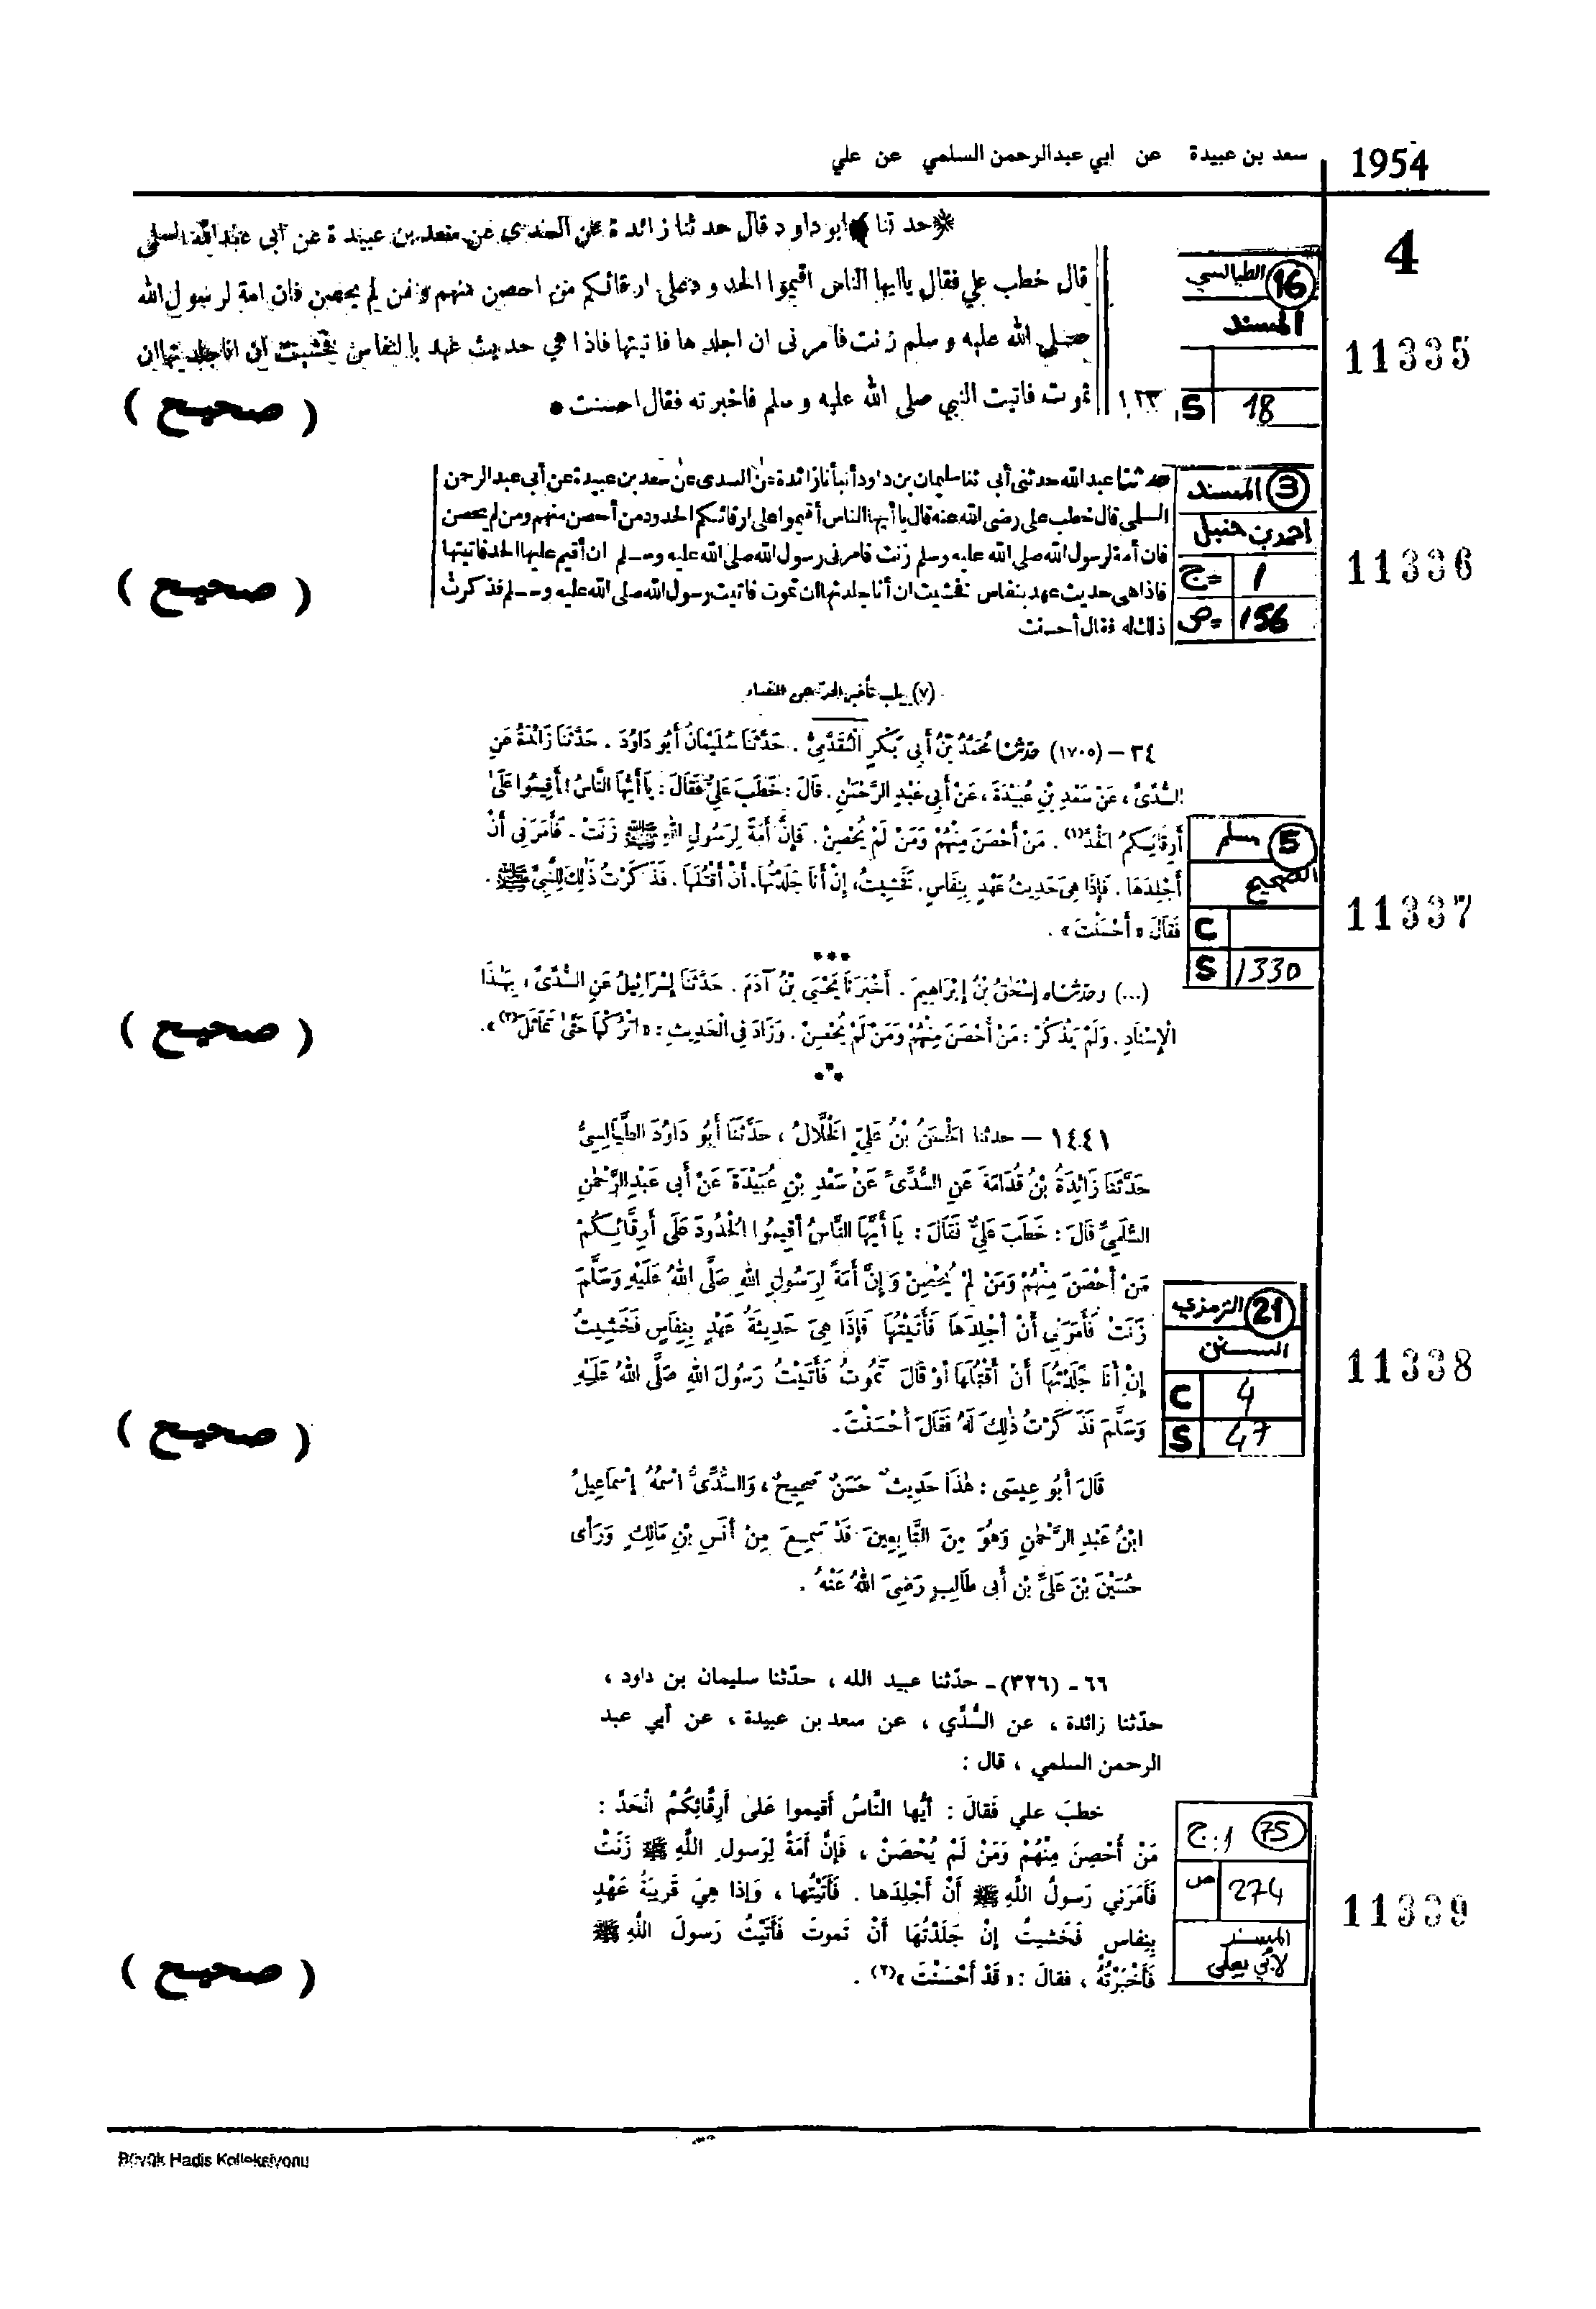 1954
سعد بن عبيدة عن ابي عبدالرحمن السلمي عن علي
4
﴿حدثنا﴾ ابو داود قال حدثنا زائدة عن السدى عن سعد بن عبيدة عن ابى عبد السلمى
قال خطب علي فقال يا ايها الناس اقيموا الحدود على ارقائكم من احصن منهم ومن لم يحصن فان امة لرسول الله
صلى الله عليه و سلم زنت فامرنى ان اجلدها فاتيتها فاذا هي حديث عهد بالنفاس فخشيت ان انا جلدتها ان
تموت فاتيت النبي صلى الله عليه و سلم فاخبرته فقال احسنت •
(16) الطيالسي
المسند
S 18
11335
( صحيح )
حدثنا عبد الله حدثنى أبى ثنا سليمان بن داود أنبأنا زائدة عن السدى عن سعد بن عبيدة عن أبى عبد الرحمن
السلمى قال خطب على رضى الله عنه قال يا أيها الناس أقيموا على ارقائكم الحدود من أحصن منهم ومن لم يحصن
فان أمة لرسول الله صلى الله عليه وسلم زنت فامرنى رسول الله صلى الله عليه وسلم ان أقيم عليها الحد فاتيتها
فاذا هى حديث عهد بنفاس فخشيت ان أنا جلدتها أن تموت فاتيت رسول الله صلى الله عليه وسلم فذكرت
ذلك له فقال أحسنت
(3) المسند
احمد بن حنبل
ج= 1
ص= 156
11336
( صحيح )
(٧) باب تأخير الحد عن النفساء
٣٤ – (١٧٠٥) حدثنا مُحَمَّدُ بْنُ أَبِى بَكْرٍ الْمُقَدَّمِىُّ . حَدَّثَنَا سُلَيْمَانُ أَبُو دَاوُدَ . حَدَّثَنَا زَائِدَةُ عَنِ
السُّدِّىِّ ، عَنْ سَعْدِ بْنِ عُبَيْدَةَ ، عَنْ أَبِى عَبْدِ الرَّحْمَٰنِ . قَالَ : خَطَبَ عَلِىٌّ فَقَالَ : يَا أَيُّهَا النَّاسُ ! أَقِيمُوا عَلَىٰ
أَرِقَّائِكُمُ الْحَدَّ(١) . مَنْ أَحْصَنَ مِنْهُمْ وَمَنْ لَمْ يُحْصِنْ . فَإِنَّ أَمَةً لِرَسُولِ اللهِ ﷺ زَنَتْ . فَأَمَرَنِى أَنْ
أَجْلِدَهَا . فَإِذَا هِىَ حَدِيثُ عَهْدٍ بِنِفَاسٍ . فَخَشِيتُ، إِنْ أَنَا جَلَدْتُهَا، أَنْ أَقْتُلَهَا . فَذَكَرْتُ ذٰلِكَ لِلنَّبِىِّ ﷺ .
فَقَالَ « أَحْسَنْتَ » .
(5) مسلم
الصحيح
C
S 1330
11337
***
(...) وحدثناه إِسْحَٰقُ بْنُ إِبْرَاهِيمَ . أَخْبَرَنَا يَحْيَىٰ بْنُ آدَمَ . حَدَّثَنَا إِسْرَائِيلُ عَنِ السُّدِّىِّ ، بِهَٰذَا
الْإِسْنَادِ . وَلَمْ يَذْكُرْ : مَنْ أَحْصَنَ مِنْهُمْ وَمَنْ لَمْ يُحْصِنْ . وَزَادَ فِى الْحَدِيثِ : « اتْرُكْهَا حَتَّىٰ تَمَاثَلَ(٢) » .
( صحيح )
١٤٤١ – حدثنا الْحَسَنُ بْنُ عَلِيٍّ الْخَلَّالُ ، حَدَّثَنَا أَبُو دَاوُدَ الطَّيَالِسِيُّ
حَدَّثَنَا زَائِدَةُ بْنُ قُدَامَةَ عَنِ السُّدِّىِّ عَنْ سَعْدِ بْنِ عُبَيْدَةَ عَنْ أَبِى عَبْدِ الرَّحْمَٰنِ
السُّلَمِيِّ قَالَ : خَطَبَ عَلِيٌّ فَقَالَ : يَا أَيُّهَا النَّاسُ أَقِيمُوا الْحُدُودَ عَلَى أَرِقَّائِكُمْ
مَنْ أَحْصَنَ مِنْهُمْ وَمَنْ لَمْ يُحْصِنْ وَإِنَّ أَمَةً لِرَسُولِ اللهِ صَلَّى اللهُ عَلَيْهِ وَسَلَّمَ
زَنَتْ فَأَمَرَنِي أَنْ أَجْلِدَهَا فَأَتَيْتُهَا فَإِذَا هِىَ حَدِيثَةُ عَهْدٍ بِنِفَاسٍ فَخَشِيتُ
إِنْ أَنَا جَلَدْتُهَا أَنْ أَقْتُلَهَا أَوْ قَالَ تَمُوتُ فَأَتَيْتُ رَسُولَ اللهِ صَلَّى اللهُ عَلَيْهِ
وَسَلَّمَ فَذَكَرْتُ ذٰلِكَ لَهُ فَقَالَ أَحْسَنْتَ .
(21) الترمذي
السنن
C 4
S 47
11338
( صحيح )
قَالَ أَبُو عِيسَى : هٰذَا حَدِيثٌ حَسَنٌ صَحِيحٌ ، وَالسُّدِّىُّ اسْمُهُ إِسْمَاعِيلُ
ابْنُ عَبْدِ الرَّحْمَٰنِ وَهُوَ مِنَ التَّابِعِينَ قَدْ سَمِعَ مِنْ أَنَسِ بْنِ مَالِكٍ وَرَأَى
حُسَيْنَ بْنَ عَلِىِّ بْنِ أَبِى طَالِبٍ رَضِىَ اللهُ عَنْهُ .
٦٦ - (٣٢٦) - حدّثنا عبيد الله ، حدّثنا سليمان بن داود ،
حدّثنا زائدة ، عن السُّدِّي ، عن سعد بن عبيدة ، عن أبي عبد
الرحمن السلمي ، قال :
خطبَ علي فَقالَ : أَيُّها النَّاسُ أَقيموا عَلىٰ أَرِقَّائِكُمْ الْحَدَّ :
مَنْ أُحْصِنَ مِنْهُمْ وَمَنْ لَمْ يُحْصَنْ ، فَإِنَّ أَمَةً لِرَسولِ اللَّهِ ﷺ زَنَتْ
فَأَمَرَني رَسولُ اللَّهِ ﷺ أَنْ أَجْلِدَها . فَأَتَيْتُها ، وَإِذا هِيَ قَريبَةُ عَهْدٍ
بِنِفاسٍ فَخَشيتُ إِنْ جَلَدْتُهَا أَنْ تَموتَ فَأَتَيْتُ رَسولَ اللَّهِ ﷺ
فَأَخْبَرْتُهُ ، فقالَ : « قَدْ أَحْسَنْتَ »(٢) .
(75) ج: 1
ص 274
المسند
لأبي يعلى
11339
( صحيح )
Büyük Hadis Kolleksiyonu